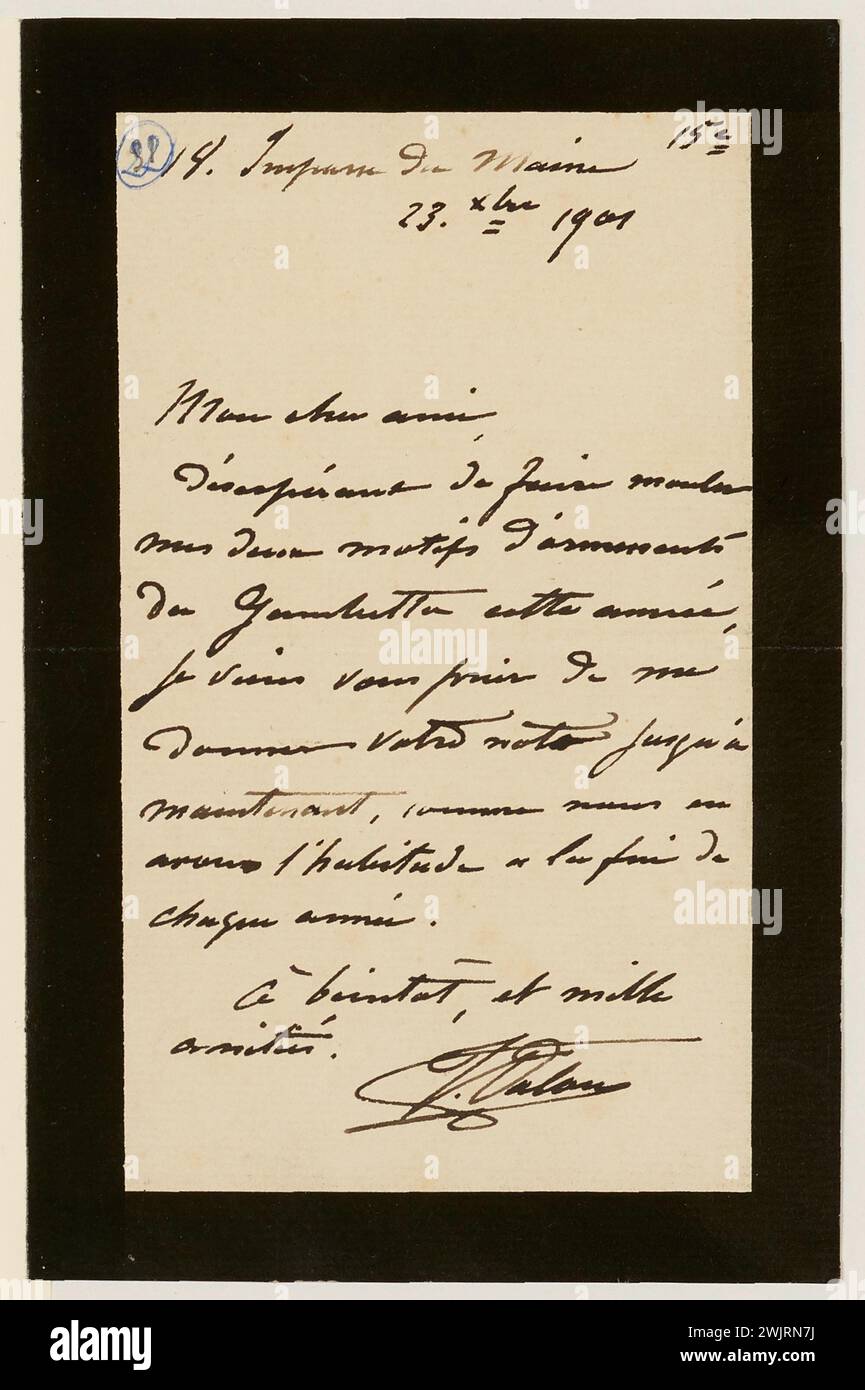 22
18. Impasse du Maine 15e
23. xbre 1901
Mon cher ami,
désespérant de faire mouler
mes deux motifs d'ornements
du Gambetta cette année,
je viens vous prier de me
donner votre note jusqu'à
maintenant, comme nous en
avons l'habitude a la fin de
chaque année.
à beintôt, et mille
amitiés.
alamy
Image ID: 2WJRN7J
www.alamy.com